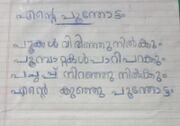 എന്റെ പൂന്തോട്ടം
പൂക്കൾ വിരിഞ്ഞുനിൽക്കും
പൂമ്പാറ്റകൾ പാറിപറക്കും
പച്ചപ്പ് നിറഞ്ഞു നിൽക്കും
എന്റെ കുഞ്ഞു പൂന്തോട്ടം